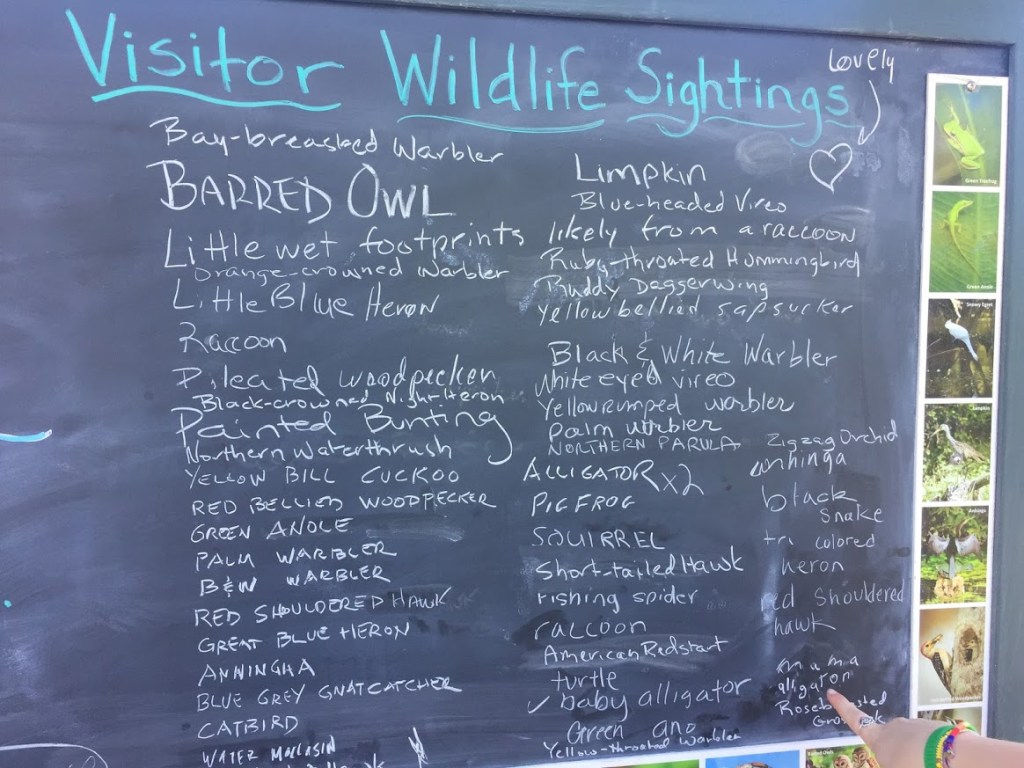 Visitor Wildlife Sightings
Lovely
Bay-breasted Warbler
BARRED OWL
Little wet footprints likely from a raccoon
Orange-crowned Warbler
Little Blue Heron
Raccoon
Pileated woodpecker
Black-crowned Night Heron
Painted Bunting
Northern Waterthrush
YELLOW BILL CUCKOO
RED BELLIED WOODPECKER
GREEN ANOLE
PALM WARBLER
B&W WARBLER
RED SHOULDERED HAWK
GREAT BLUE HERON
ANNINGHA
BLUE GREY GNATCATCHER
CATBIRD
WATER Moccasin
Limpkin
Blue-headed Vireo
Ruby-throated Hummingbird
Ruddy Daggerwing
Yellow bellied sapsucker
Black & White Warbler
White eyed vireo
Yellow rumped warbler
palm warbler
NORTHERN PARULA
ALLIGATOR x2
PIG FROG
SQUIRREL
Short-tailed Hawk
fishing spider
raccoon
American Redstart
turtle
✓ baby alligator
Green ano
Yellow-throated Warbler
Zigzag Orchid
anhinga
black
snake
tri colored
heron
red shouldered
hawk
mama
alligator
Rosebreasted
Green Anole
Snowy Egret